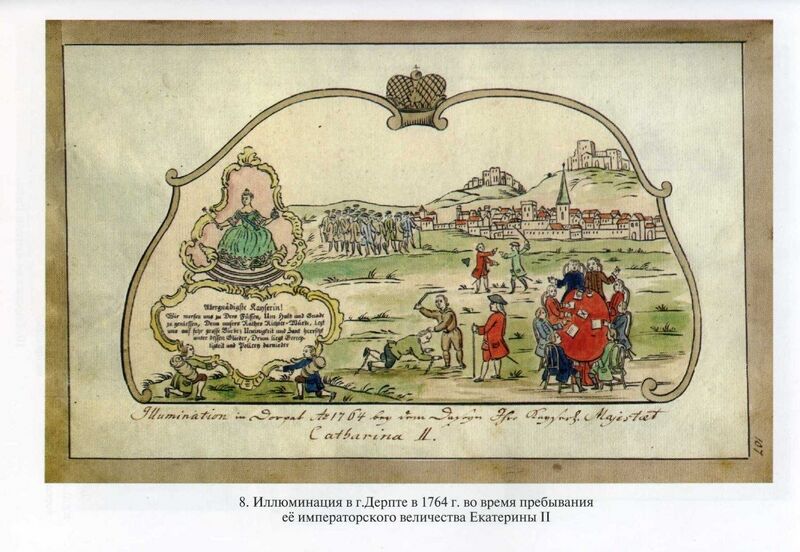 Allergnädigste Kayserin!
Wir werfen uns zu Dero Füssen, Um Huld und Gnade
zu geniessen, Denn unsers Rathes Richter-Würde, legt
uns auf sehr große Bürde; Uneinigkeit und Zanck herrschet
unter dessen Glieder, Drum liegt Gerech-
tigkeit und Policey darnieder
Illumination in Dorpat Ao 1764 bey dem Daseyn Ihro Kayserl. Majestæt
Catharina II.
107
8. Иллюминация в г.Дерпте в 1764 г. во время пребывания
её императорского величества Екатерины II